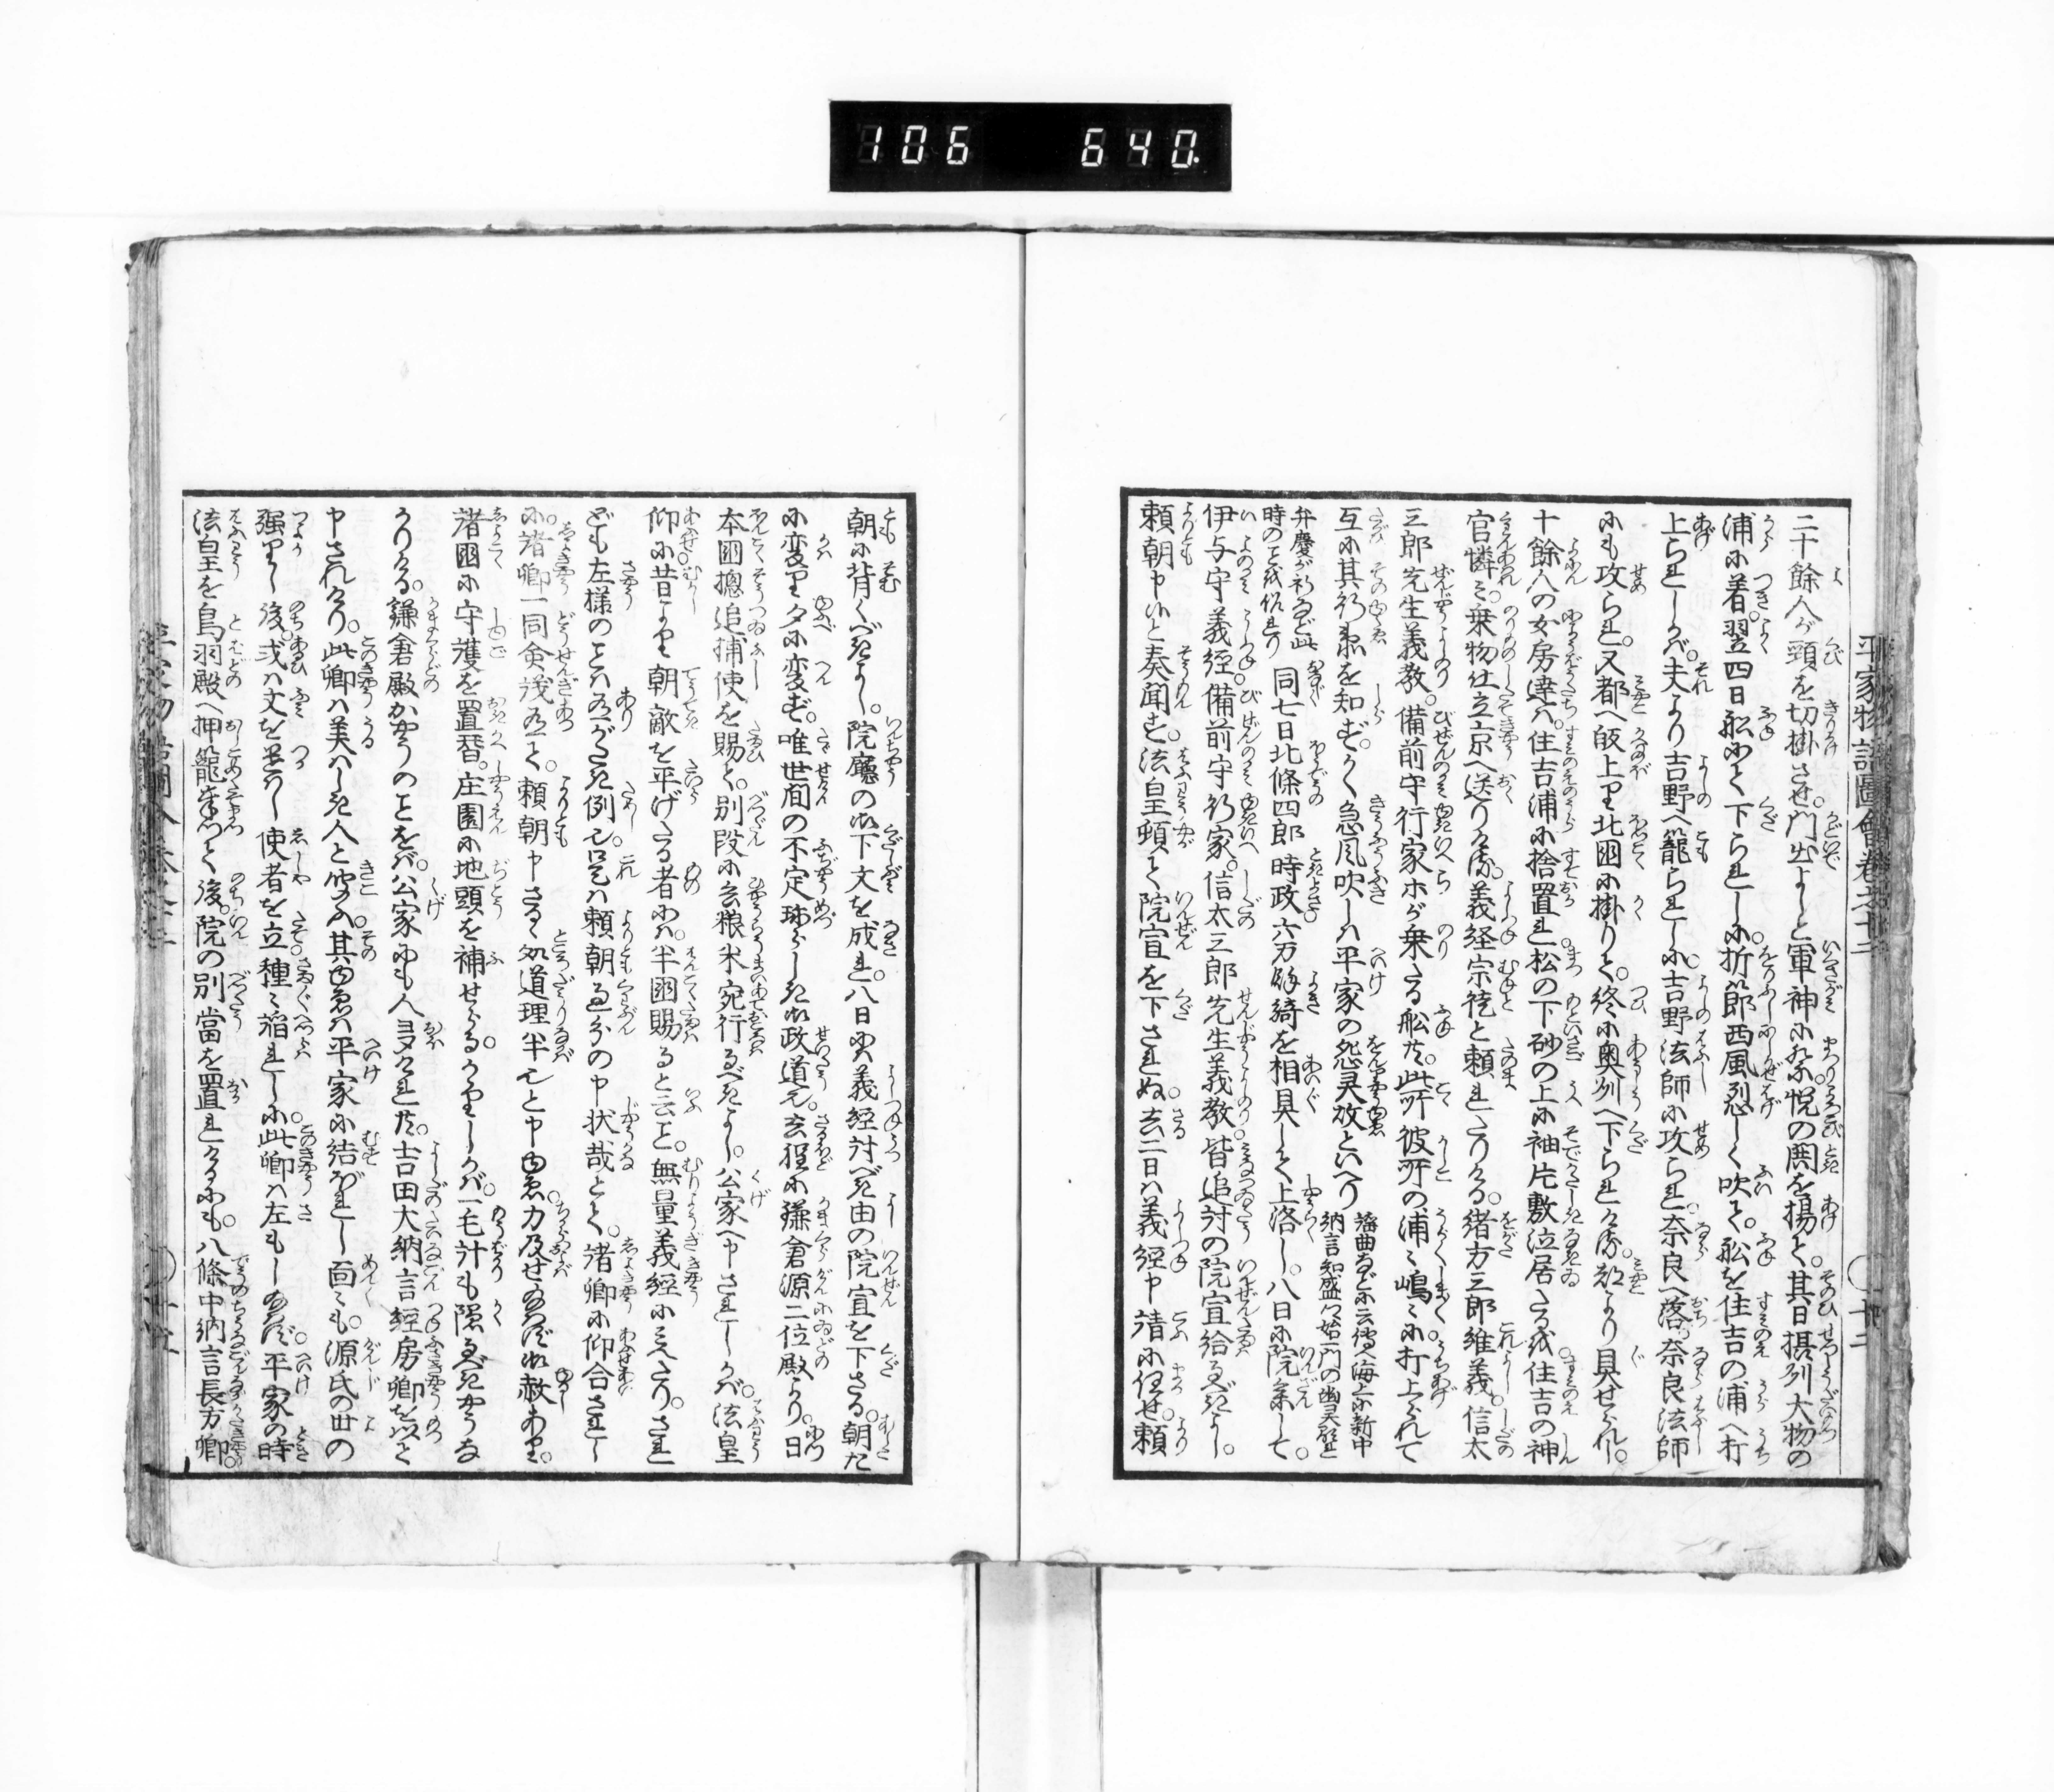 106 640
平家物語圖會卷之十二
二十餘人が頸を切掛させ。門出よしと軍神に祭。悦の鬨を揚て。其日摂州大物の
浦に着。翌四日舩にて下られしに。折節西風烈しく吹て。舩を住吉の浦へ打
上られしかば。夫より吉野へ籠られしに。吉野法師に攻られ。奈良へ落。奈良法師
にも攻られ。又都へ皈上り北国に掛りて。終に奥州へ下られける。都より具せられし。
十餘人の女房達は。住吉浦に捨置れ。松の下砂の上に袖片敷泣居たるを。住吉の神
官憐ミ。乗物仕立京へ送りける。義経宗徒と頼れたりける。緒方三郎維義。信太
三郎先生義教。備前守行家ホが乗たる舩共。此所彼所の浦ミ嶋ミに打上られて
互に其行末を知ず。かく急風吹しハ平家の怨灵故といへり
謡曲などに云傳へ海上に新中
納言知盛以始一門の幽灵顕出
弁慶が祈など此
時のことを作れり
同七日北條四郎時政六万餘騎を相具して上洛し。八日に院参して。
伊与守義経備前守行家。信太三郎先生義教皆追討の院宣給るべきよし。
頼朝申いと奏聞す。法皇頓て院宣を下されぬ。去二日ハ義経申請に任せ。頼
朝に背くべきよし。院廳の御下文を成れ。八日に又義経討べき由の院宣を下さる。朝た
に変り夕に変ず。唯世間の不定珎らしき御政道也。去程に鎌倉源二位殿より。日
本国摠追捕使を賜て。別段に兵粮米宛行るべきよし。公家へ申されしかば。法皇
仰に昔より朝敵を平げたる者にハ。半国賜ると云こと。無量義経に見えたり。され
ども左様のことハ有がたき例也。是ハ頼朝過分の申状哉とて。諸卿に仰合されし
に。諸卿一同僉議有て。頼朝申さるゝ処道理半也と申由ゑ力及せ給はず御赦あり。
諸国に守護を置替。庄園に地頭を補せらる。かゝりしかば。一毛計も隠るべきやうな
かりける。鎌倉殿かやうのことをば。公家にも人多けれ共。吉田大納言經房卿を以て
申されけり。此卿ハ美ハしき人と聞ふ。其由ゑハ平家に結ばれし面ミも。源氏の世の
强りし後。或ハ文を遣し使者を立種ミ諂れしに。此卿ハ左もし給はず。平家の時
法皇を鳥羽殿へ押籠奉りて後。院の別當を置れけるにも。八條中納言長方卿。